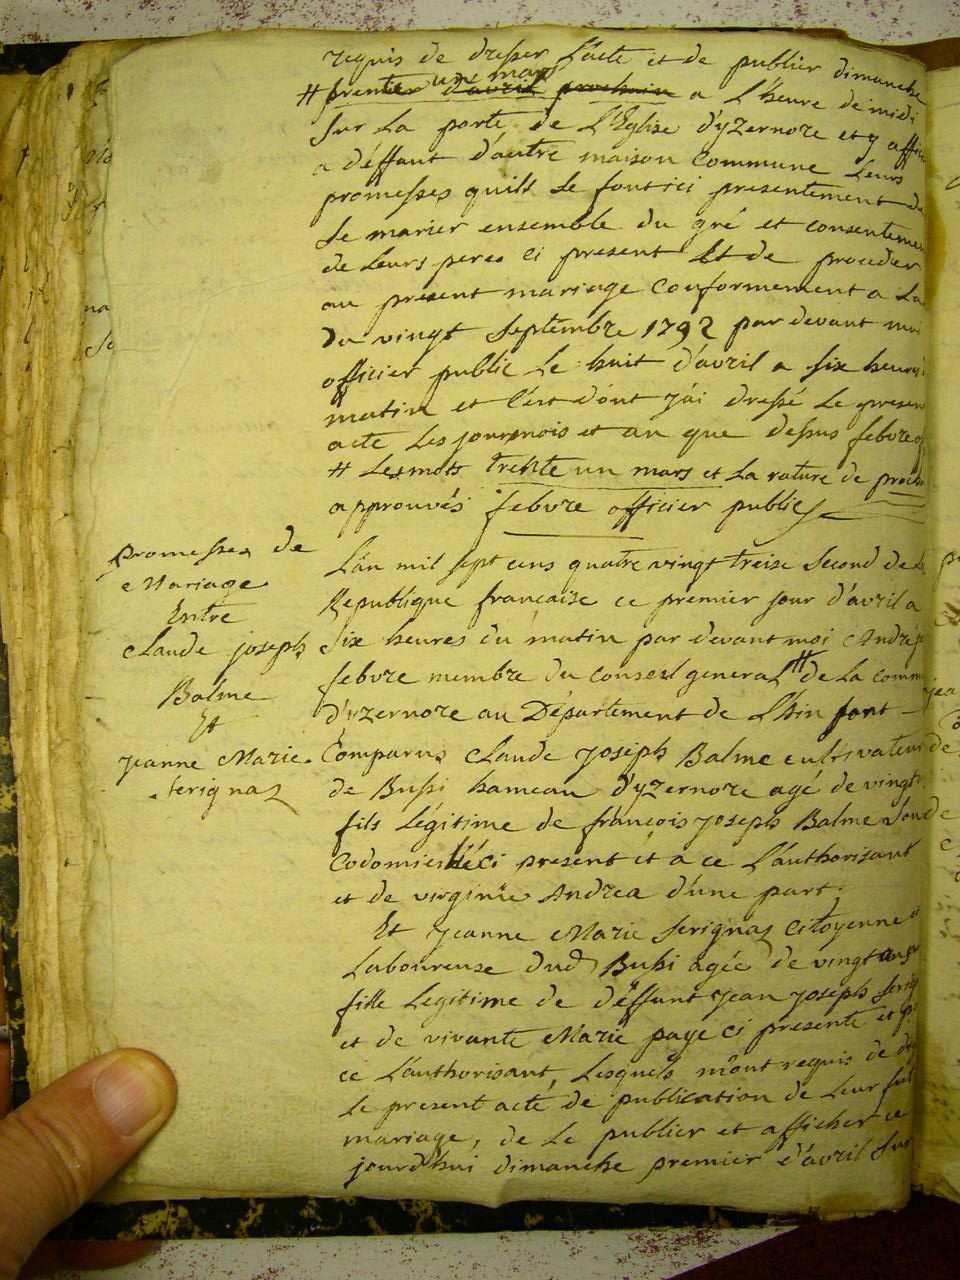 requis de dresser l'acte et de publier dimanche
# premier d'avril prochain a l'heure de midi
trente une mars
sur la porte de l'Eglise d'yzernore et y
a déffaut d'autre maison commune leurs
promesses quils se font ici presentement de
se marier ensemble du gré et
de leurs peres ci present Et de proceder
au present mariage conformement a la
du vingt septembre 1792 par devant moi
officier public le huit d'avril a six heures
matin et c'est dont j'ai dressé le
acte les jour mois et an que dessus febvre
# Les mots trente un mars et la rature de
approuvés febvre officier public
promesses de
Mariage
Entre
Claude joseph
Balme
Et
jeanne Marie
serignat
L'an mil sept cens quatre vingt treise second de la
Republique francaise ce premier jour d'avril a
six heures du matin par devant moi André
febvre membre du conseil general # de la
d'yzernore au Département de L'Ain sont
Comparus Claude joseph Balme cultivateur
de Bussi hameau d'yzernore agé de vingt
fils légitime de françois joseph Balme
ci present et a ce l'authorisant
et de virginie Andrea d'une part.
Et jeanne Marie serignat citoyenne
Laboureuse dud Bussi agée de vingt
fille légitime de déffunt jean joseph
et de vivante Marie page ci presente et
ce l'authorisant, Lesquels m'ont requis de
Le present acte de publication de leur
mariage, de le publier et afficher ce
jourdhui dimanche premier d'avril sur